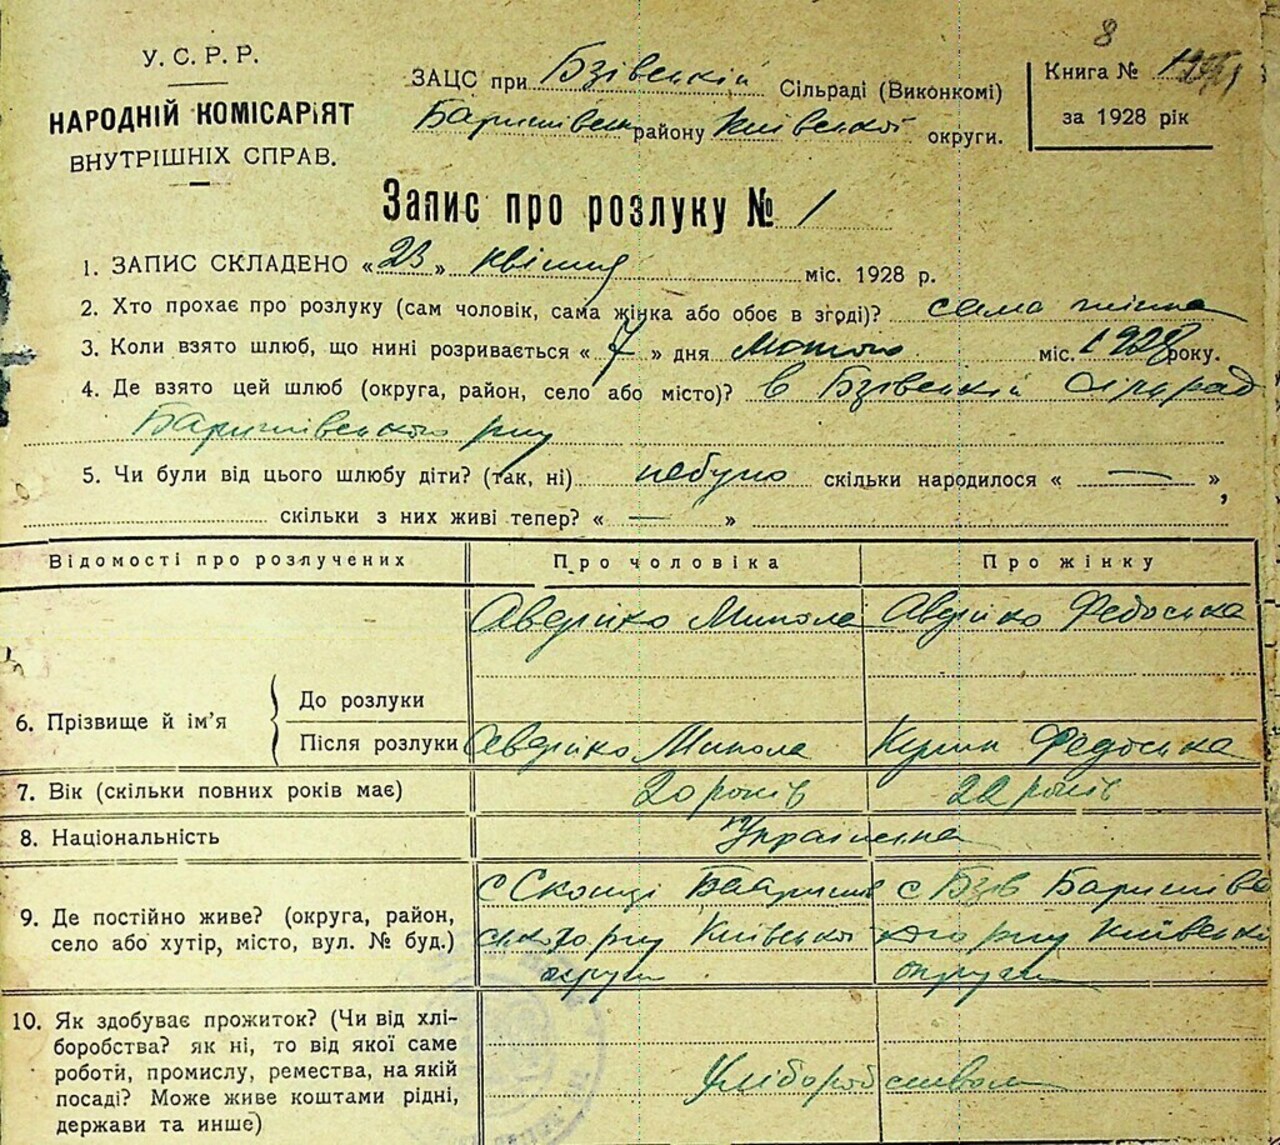 8
У. С. Р. Р.
НАРОДНІЙ КОМІСАРІЯТ
ВНУТРІШНІХ СПРАВ.
ЗАЦС при Бзівській Сільраді (Виконкомі)
району Київської округи.
Книга №
за 1928 рік
Запис про розлуку № 1
1. ЗАПИС СКЛАДЕНО « 23 » квітня міс. 1928 р.
2. Хто прохає про розлуку (сам чоловік, сама жінка або обоє в згоді)? сама жінка
3. Коли взято шлюб, що нині розривається « 7 » дня лютого міс. 1928 року.
4. Де взято цей шлюб (округа, район, село або місто)? в Бзівській Сільрад
Баришівського р-ну
5. Чи були від цього шлюбу діти? (так, ні) небуло скільки народилося « — »,
скільки з них живі тепер? « — »
Відомості про розлучених
Про чоловіка
Про жінку
Авдійко Микола
Авдійко Федоська
6. Прізвище й ім'я
До розлуки
Після розлуки
Авдійко Микола
Федоська
7. Вік (скільки повних років має)
20 років
22 років
8. Національність
Українська
9. Де постійно живе? (округа, район,
село або хутір, місто, вул. № буд.)
с Скопці Баришів
ського р-ну Київської
округи
с Бзів Баришівс
кого р-ну Київської
округи
10. Як здобуває прожиток? (Чи від хлі-
боробства? як ні, то від якої саме
роботи, промислу, ремества, на якій
посаді? Може живе коштами рідні,
держави та инше)
Хліборобством